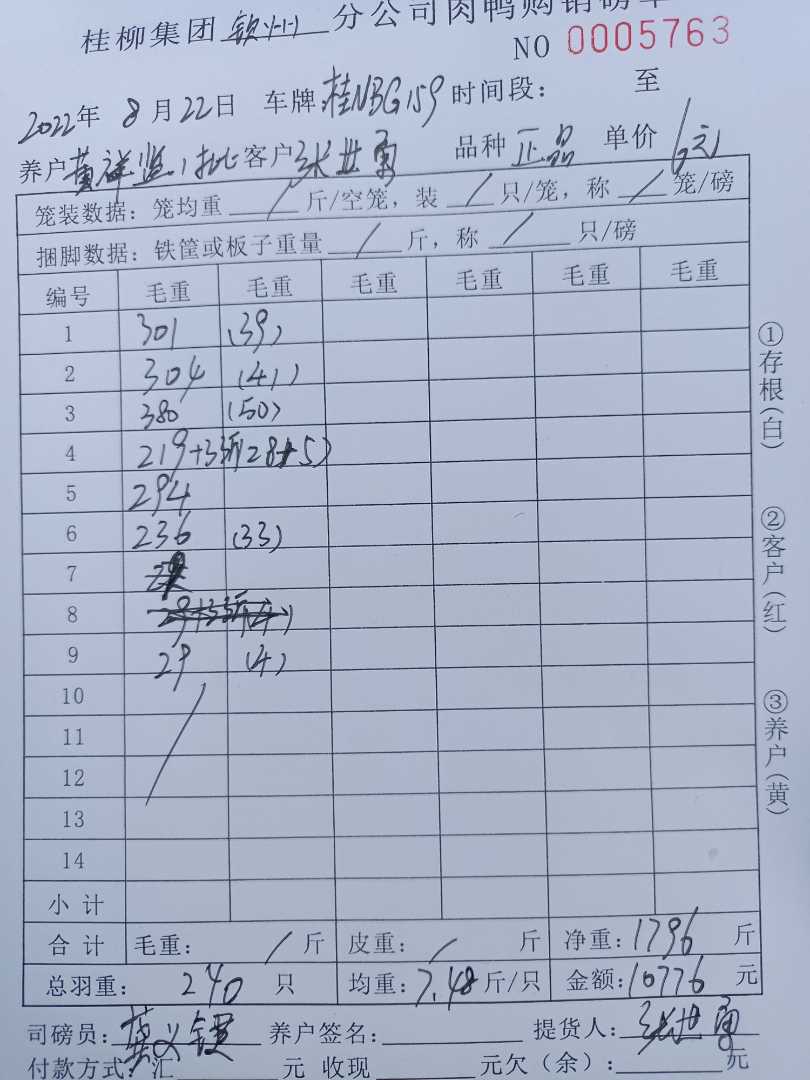 桂柳集团 钦州 分公司肉鸭购销磅单
NO 0005763
2022年 8月22日 车牌:桂NBG159 时间段: 至
养户 黄祥监1批 客户 张世勇 品种 正品 单价 6元
笼装数据: 笼均重 / 斤/空笼, 装 / 只/笼, 称 / 笼/磅
捆脚数据: 铁筐或板子重量 / 斤, 称 / 只/磅
编号 毛重 毛重 毛重 毛重 毛重 毛重
1 301 (39)
2 304 (41)
3 380 (50)
4 219+33斤(28+5)
5 294
6 236 (33)
7
8 29+33斤(4)
9 29 (4)
10
11
12
13
14
小计
合计 毛重: / 斤 皮重: / 斤 净重: 1796 斤
总羽重: 240 只 均重: 7.48 斤/只 金额: 10776 元
司磅员: 养户签名: 提货人: 张世勇
付款方式: 汇 元 收现 元欠(余): 元
①存根(白)
②客户(红)
③养户(黄)